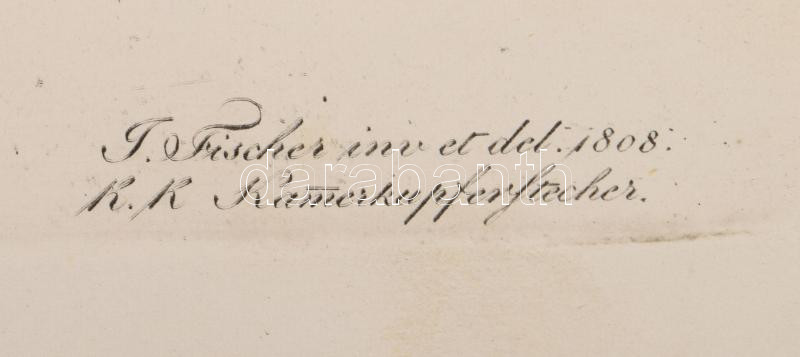 J. Fischer inv et del: 1808.
K. K Kam̅erkupferstecher.
darabanth